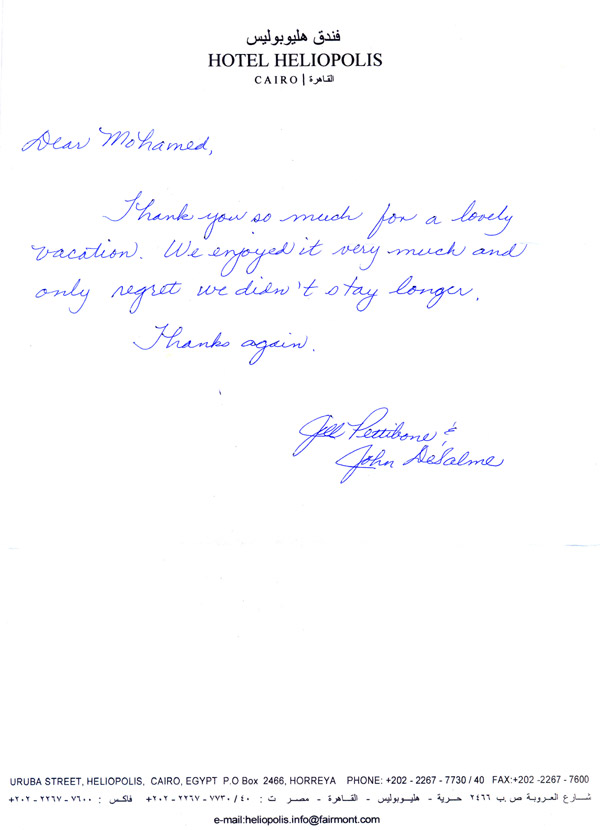 فندق هليوبوليس
HOTEL HELIOPOLIS
CAIRO | القاهرة
Dear Mohamed,
Thank you so much for a lovely
vacation. We enjoyed it very much and
only regret we didn't stay longer.
Thanks again.
Jill Pettibone &
John DeSalme
URUBA STREET, HELIOPOLIS, CAIRO, EGYPT P.O Box 2466, HORREYA PHONE: +202 - 2267 - 7730 / 40 FAX:+202 -2267 - 7600
شارع العروبة ص.ب ٢٤٦٦ حرية - هليوبوليس - القاهرة - مصر ت : ٤٠ / ٧٧٣٠ - ٢٢٦٧ - ٢٠٢+ فاكس : ٧٦٠٠ - ٢٢٦٧ - ٢٠٢+
e-mail:heliopolis.info@fairmont.com